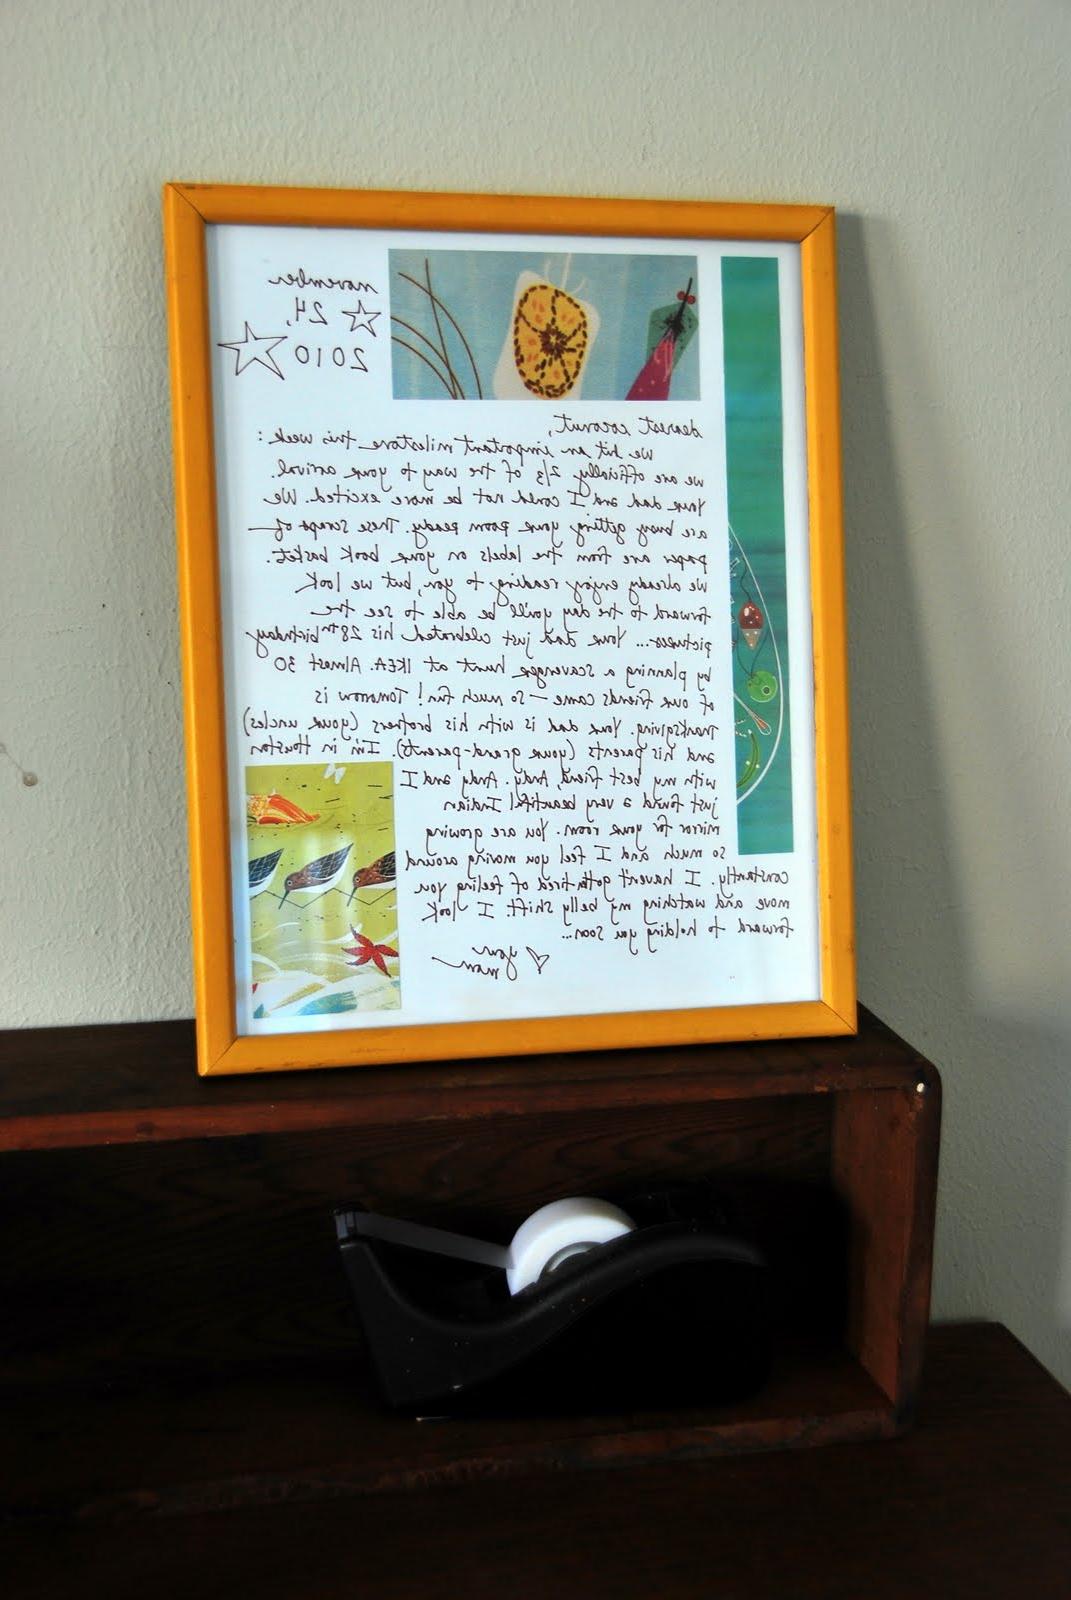 november
24,
2010
dearest coconut,
We hit an important milestone this week:
we are officially 2/3 of the way to your arrival.
Your dad and I could not be more excited. We
are busy getting your room ready. These scraps of
paper are from the labels on your book basket.
We already enjoy reading to you, but we look
forward to the day you'll be able to see the
pictures... Your dad just celebrated his 28th birthday
by planning a scavenger hunt at IKEA. Almost 30
of our friends came - so much fun! Tomorrow is
Thanksgiving. Your dad is with his brothers (your uncles)
and his parents (your grand-parents). I'm in Houston
with my best friend, Andy. Andy and I
just found a very beautiful Indian
mirror for your room. You are growing
so much and I feel you moving around
constantly. I haven't gotten tired of feeling you
move and watching my belly shift. I look
forward to holding you soon...
♡ your
mom